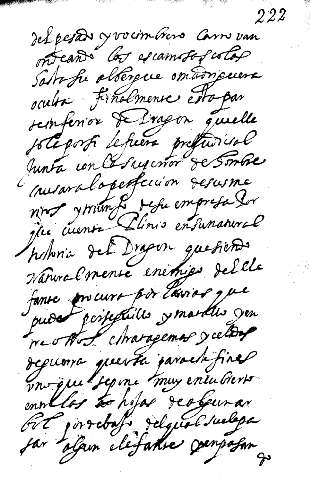 222
del pesado y vocinbrero carro van
ondeando las escamosas colas
hasta su albergue o madriguera
oculta. Finalmente esta par
te inferior de Dragon que elle
sola por si le fuera prejudicial
Junta con la superior de hombre
causara la perfeccion de sus me
ritos y triunfo de su empresa Por
que cuenta Plinio en su natural
historia del Dragon que siendo
Naturalmente enemigo del Ele
fante procura por las vias que
puede perseguillo y matallo y en
tre otros estratagemas y celadas
de guerra que usa para este fin es
uno que se pone muy encubierto
entre las hojas de algun ar
bol por debajo del qual suele pa
sar algun elefante y en pasan
do